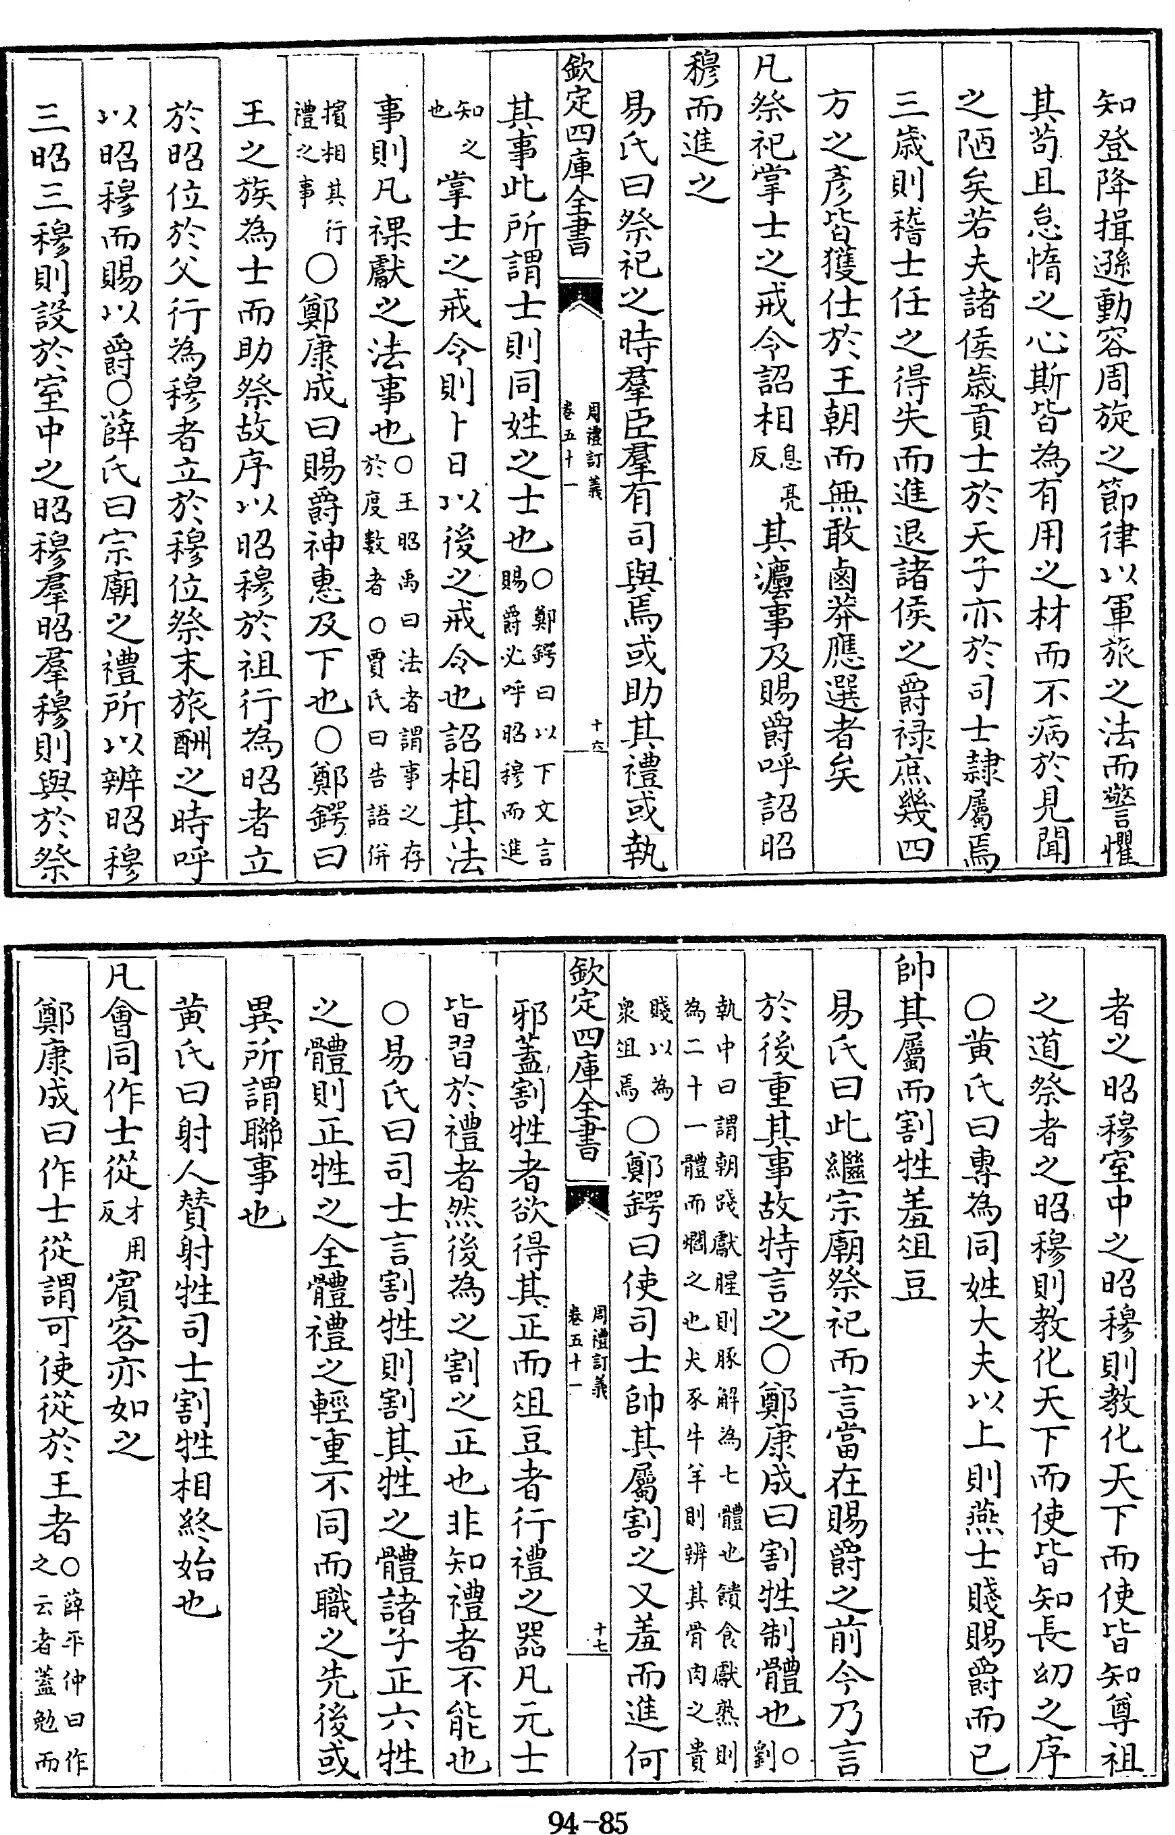 知登降揖遜動容周旋之節律以軍旅之法而警懼
其苟且怠惰之心斯皆為有用之材而不病於見聞
之陋矣若夫諸侯歲貢士於天子亦於司士隷屬焉
三歳則稽士任之得失而進退諸侯之爵禄庶幾四
方之彥皆獲仕於王朝而無敢鹵莽應選者矣
凡祭祀掌士之戒令詔相息亮反其灋事及賜爵呼詔昭
穆而進之
易氏曰祭祀之時羣臣羣有司與焉或助其禮或執
欽定四庫全書 周禮訂義 卷五十一 十六
其事此所謂士則同姓之士也○鄭鍔曰以下文言賜爵必呼昭穆而進
知之也掌士之戒令則卜日以後之戒令也詔相其法
事則凡祼獻之法事也○王昭禹曰法者謂事之存於度數者○賈氏曰告語併
擯相其行禮之事○鄭康成曰賜爵神惠及下也○鄭鍔曰
王之族為士而助祭故序以昭穆於祖行為昭者立
於昭位於父行為穆者立於穆位祭末旅酬之時呼
以昭穆而賜以爵○薛氏曰宗廟之禮所以辨昭穆
三昭三穆則設於室中之昭穆羣昭羣穆則與於祭
者之昭穆室中之昭穆則教化天下而使皆知尊祖
之道祭者之昭穆則教化天下而使皆知長幼之序
○黄氏曰專為同姓大夫以上則燕士賤賜爵而已
帥其屬而割牲羞俎豆
易氏曰此繼宗廟祭祀而言當在賜爵之前今乃言
於後重其事故特言之○鄭康成曰割牲制體也○劉
執中曰謂朝踐獻腥則豚解為七體也饋食獻熟則為二十一體而爓之也犬豕牛羊則辨其骨肉之貴
賤以為衆俎焉○鄭鍔曰使司士帥其屬割之又羞而進何
欽定四庫全書 周禮訂義 卷五十一 十七
邪蓋割牲者欲得其正而俎豆者行禮之器凡元士
皆習於禮者然後為之割之正也非知禮者不能也
○易氏曰司士言割牲則割其牲之體諸子正六牲
之體則正牲之全體禮之輕重不同而職之先後或
異所謂聯事也
黄氏曰射人贊射牲司士割牲相終始也
凡會同作士從才用反賓客亦如之
鄭康成曰作士從謂可使從於王者○薛平仲曰作之云者蓋勉而
94-85